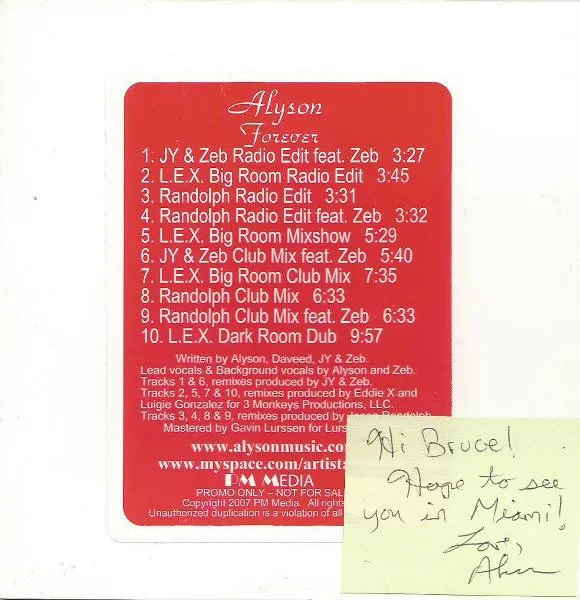 Alyson
Forever
1. JY & Zeb Radio Edit feat. Zeb 3:27
2. L.E.X. Big Room Radio Edit 3:45
3. Randolph Radio Edit 3:31
4. Randolph Radio Edit feat. Zeb 3:32
5. L.E.X. Big Room Mixshow 5:29
6. JY & Zeb Club Mix feat. Zeb 5:40
7. L.E.X. Big Room Club Mix 7:35
8. Randolph Club Mix 6:33
9. Randolph Club Mix feat. Zeb 6:33
10. L.E.X. Dark Room Dub 9:57
Written by Alyson, Daveed, JY & Zeb.
Lead vocals & Background vocals by Alyson and Zeb.
Tracks 1 & 6, remixes produced by JY & Zeb.
Tracks 2, 5, 7 & 10, remixes produced by Eddie X and
Luigie Gonzalez for 3 Monkeys Productions, LLC.
Tracks 3, 4, 8 & 9, remixes produced by Jason Randolph
Mastered by Gavin Lurssen for Lurs
www.alysonmusic.co
www.myspace.com/artista
PM MEDIA
PROMO ONLY – NOT FOR SAL
Copyright 2007 PM Media. All rights
Unauthorized duplication is a violation of all
Hi Bruce!
Hope to see
you in Miami!
Love,